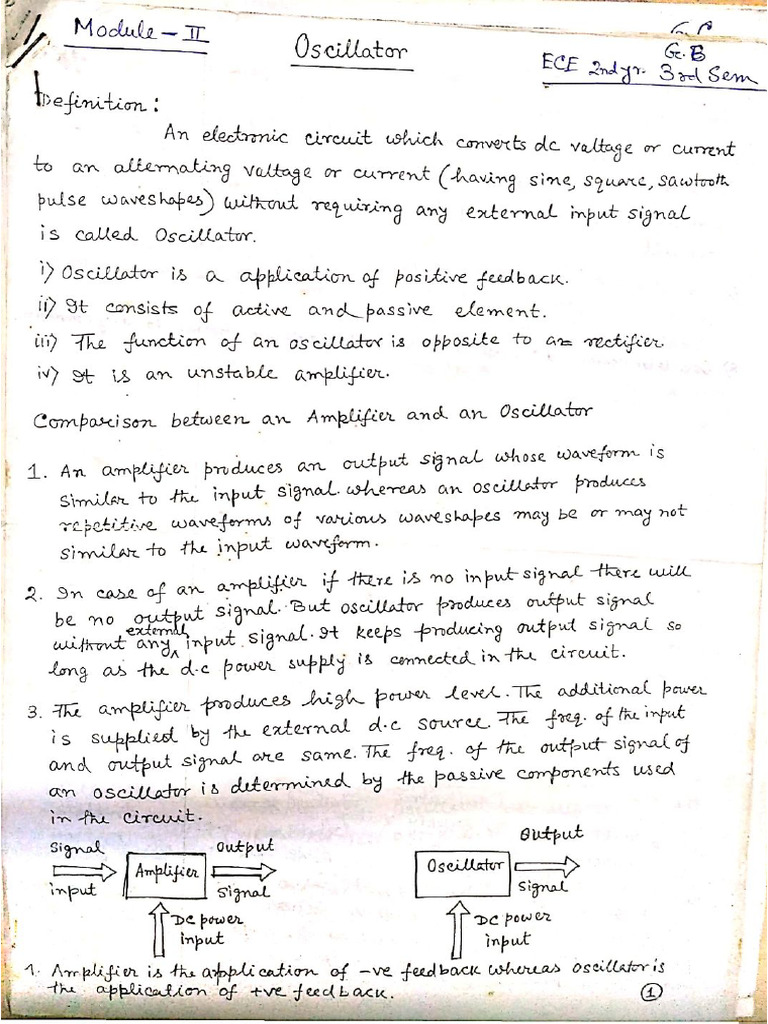 Module-II
Oscillator
G.B
ECE 2nd yr. 3rd Sem
Definition:
An electronic circuit which converts dc voltage or current
to an alternating voltage or current (having sine, square, sawtooth
pulse waveshapes) without requiring any external input signal
is called Oscillator.
i) Oscillator is a application of positive feedback.
ii) It consists of active and passive element.
iii) The function of an oscillator is opposite to a rectifier.
iv) It is an unstable amplifier.
Comparison between an Amplifier and an Oscillator
1. An amplifier produces an output signal whose waveform is
similar to the input signal. whereas an oscillator produces
repetitive waveforms of various waveshapes may be or may not
similar to the input waveform.
2. In case of an amplifier if there is no input signal there will
be no output signal. But oscillator produces output signal
without any external input signal. It keeps producing output signal so
long as the d.c power supply is connected in the circuit.
3. The amplifier produces high power level. The additional power
is supplied by the external d.c source. The freq. of the input
and output signal are same. The freq. of the output signal of
an oscillator is determined by the passive components used
in the circuit.
Signal
input
Amplifier
Output
Signal
DC power
input
Oscillator
Output
Signal
DC power
input
1. Amplifier is the application of -ve feedback whereas oscillator is
the application of +ve feedback.
1